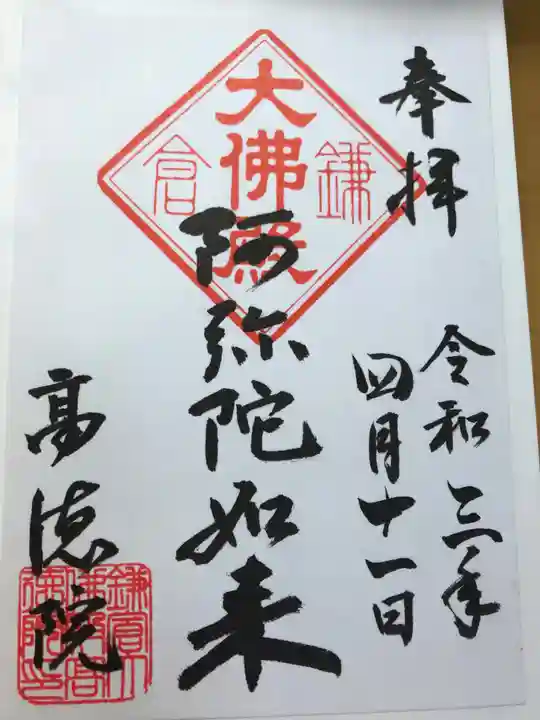 奉拝
令和三年
四月十一日
鎌倉
大佛殿
阿弥陀如来
高徳院